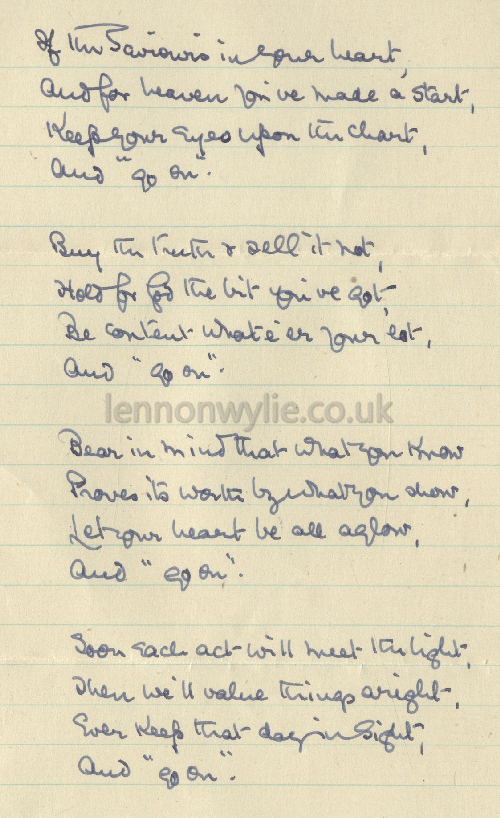 If the Saviour's in your heart,
And for heaven you've made a start,
Keep your eyes upon the chart,
And "go on".
Buy the truth & sell it not,
Hold for God the bit you've got,
Be content whate'er your lot,
And "go on".
lennonwylie.co.uk
Bear in mind that what you know
Proves its worth by what you show,
Let your heart be all aglow,
And "go on".
Soon each act will meet the light,
Then we'll value things aright,
Ever keep that day in sight,
And "go on".